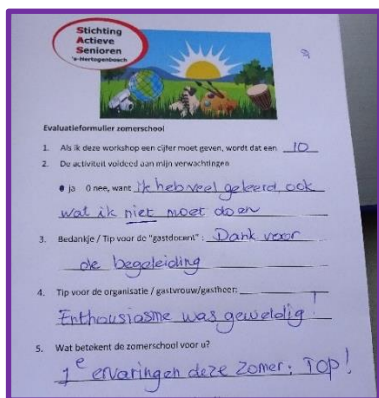 Stichting
Actieve
Senioren
's-Hertogenbosch
Evaluatieformulier zomerschool
1. Als ik deze workshop een cijfer moet geven, wordt dat een 10
2. De activiteit voldeed aan mijn verwachtingen
ja 0 nee, want ik heb veel geleerd, ook
wat ik niet moet doen
3. Bedankje / Tip voor de "gastdocent": Dank voor
de begeleiding
4. Tip voor de organisatie / gastvrouw/gastheer:
Enthousiasme was geweldig!
5. Wat betekent de zomerschool voor u?
1e ervaringen deze zomer: TOP!